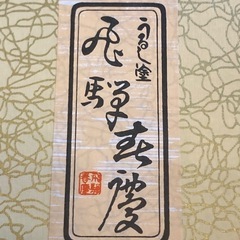 うるし塗
飛騨春慶